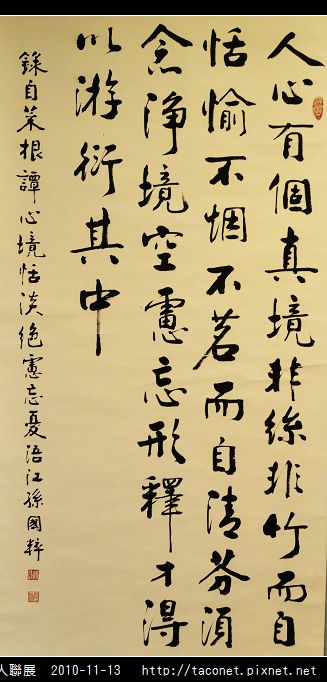 人心有個真境非絲非竹而自
恬愉不烟不茗而自清芬須
念淨境空慮忘形釋才得
以游衍其中
錄自菜根譚心境恬淡絕慮忘憂浯江孫國粹
人聯展 2010-11-13 http://taconet.pixnet.net